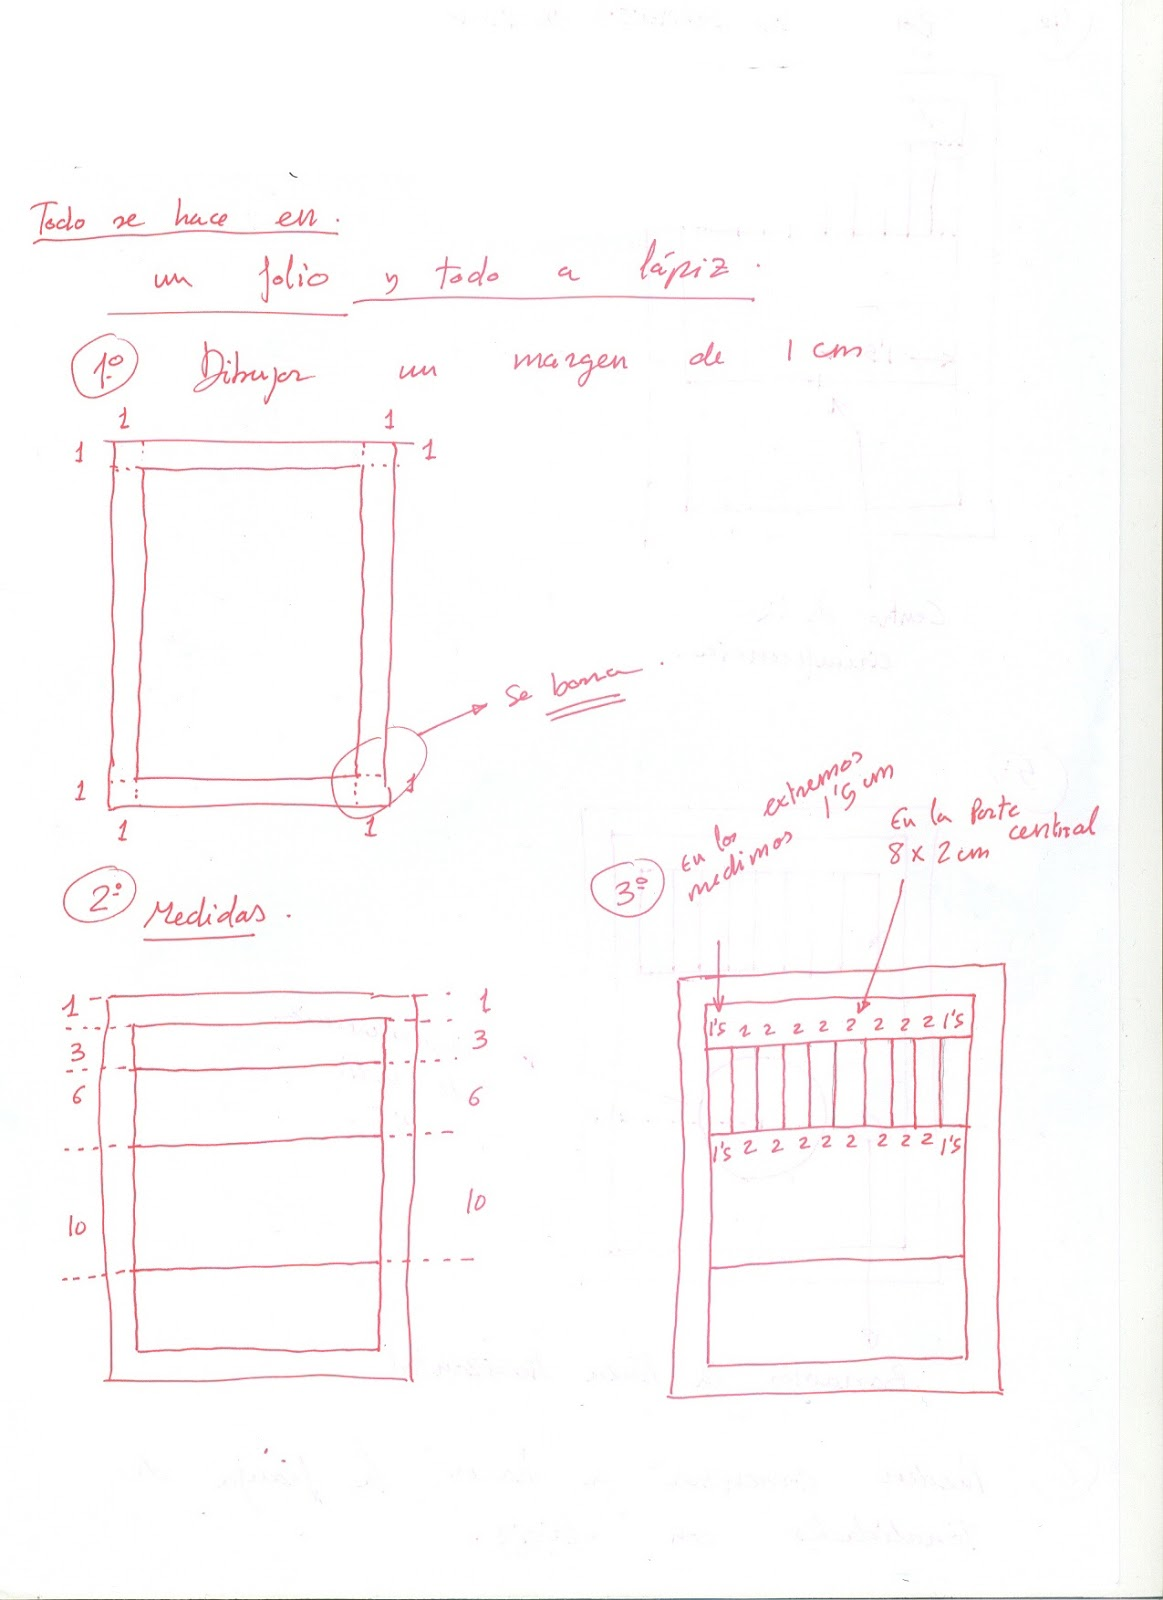 Todo se hace en.
un folio y todo a lápiz.
1º Dibujar un margen de 1 cm
1 1
1 1
Se borra.
1 1
1 1
2º Medidas.
3º En los extremos
medimos 1'5 cm
En la Parte central
8 x 2 cm
1 1
3 3
6 6
10 10
1'5 2 2 2 2 2 2 2 2 1'5
1'5 2 2 2 2 2 2 2 2 1'5